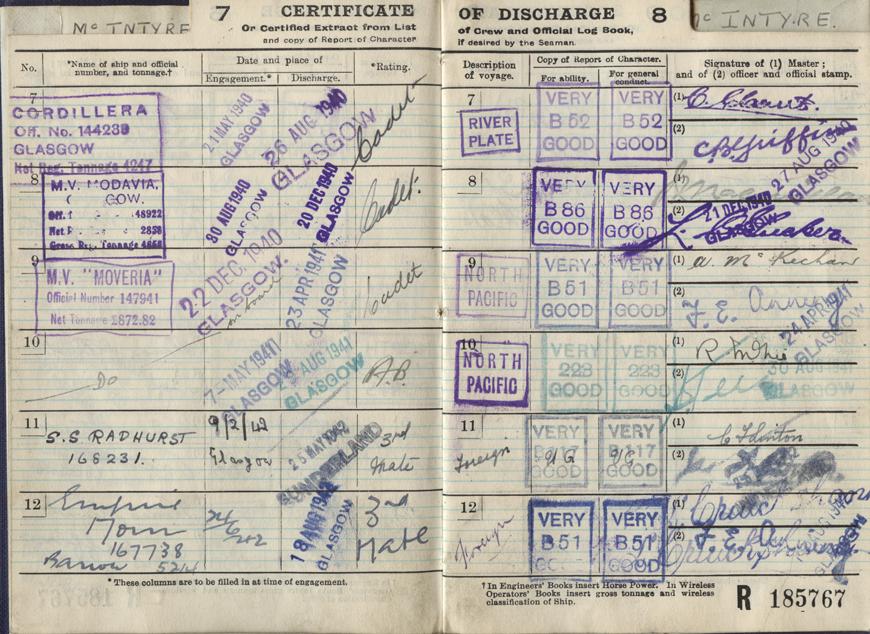 Mc INTYRE 7 CERTIFICATE
Or Certified Extract from List
and copy of Report of Character
No.
*Name of ship and official number, and tonnage.†
Date and place of
Engagement.* Discharge.
*Rating.
7
CORDILLERA
Off. No. 144239
GLASGOW
Net Reg. Tonnage 4247
21 MAY 1940
GLASGOW
26 AUG 1940
GLASGOW
Cadet
8
M.V. MODAVIA.
GOW.
Gross Reg. Tonnage
30 AUG 1940
GLASGOW
20 DEC 1940
GLASGOW
Cadet.
9
M.V. "MOVERIA"
Official Number 147941
Net Tonnage 2872.82
22 DEC. 1940
GLASGOW.
on board
23 APR 1941
GLASGOW
Cadet
10
Do
7-MAY 1941
GLASGOW
AUG 1941
GLASGOW
A.B.
11
S.S RADHURST
168231.
9/2/42
Glasgow
25 MAY 1942
SUNDERLAND
3rd
Mate
12
Empire
Morn
167738
Barrow
18 AUG 1942
GLASGOW
3rd
Mate
*These columns are to be filled in at time of engagement.
OF DISCHARGE 8 Mc INTYRE.
of Crew and Official Log Book,
if desired by the Seaman.
Description of voyage.
Copy of Report of Character.
For ability. For general conduct.
Signature of (1) Master;
and of (2) officer and official stamp.
7
RIVER
PLATE
VERY VERY
B 52 B 52
GOOD GOOD
(1)
(2)
27 AUG 1940
GLASGOW
8
VERY VERY
B 86 B 86
GOOD GOOD
(2)
21 DEC 1940
GLASGOW
9
NORTH
PACIFIC
VERY VERY
B 51 B 51
GOOD GOOD
(1)
(2)
24 APR 1941
GLASGOW
10
NORTH
PACIFIC
VERY VERY
223 223
GOOD GOOD
(1)
(2)
30 AUG 1941
GLASGOW
11
Foreign
VERY VERY
GOOD GOOD
(1)
(2)
12
Foreign
VERY VERY
B 51 B 51
GOOD GOOD
(1)
(2)
†In Engineers' Books insert Horse Power. In Wireless
Operators' Books insert gross tonnage and wireless
classification of Ship.
R 185767